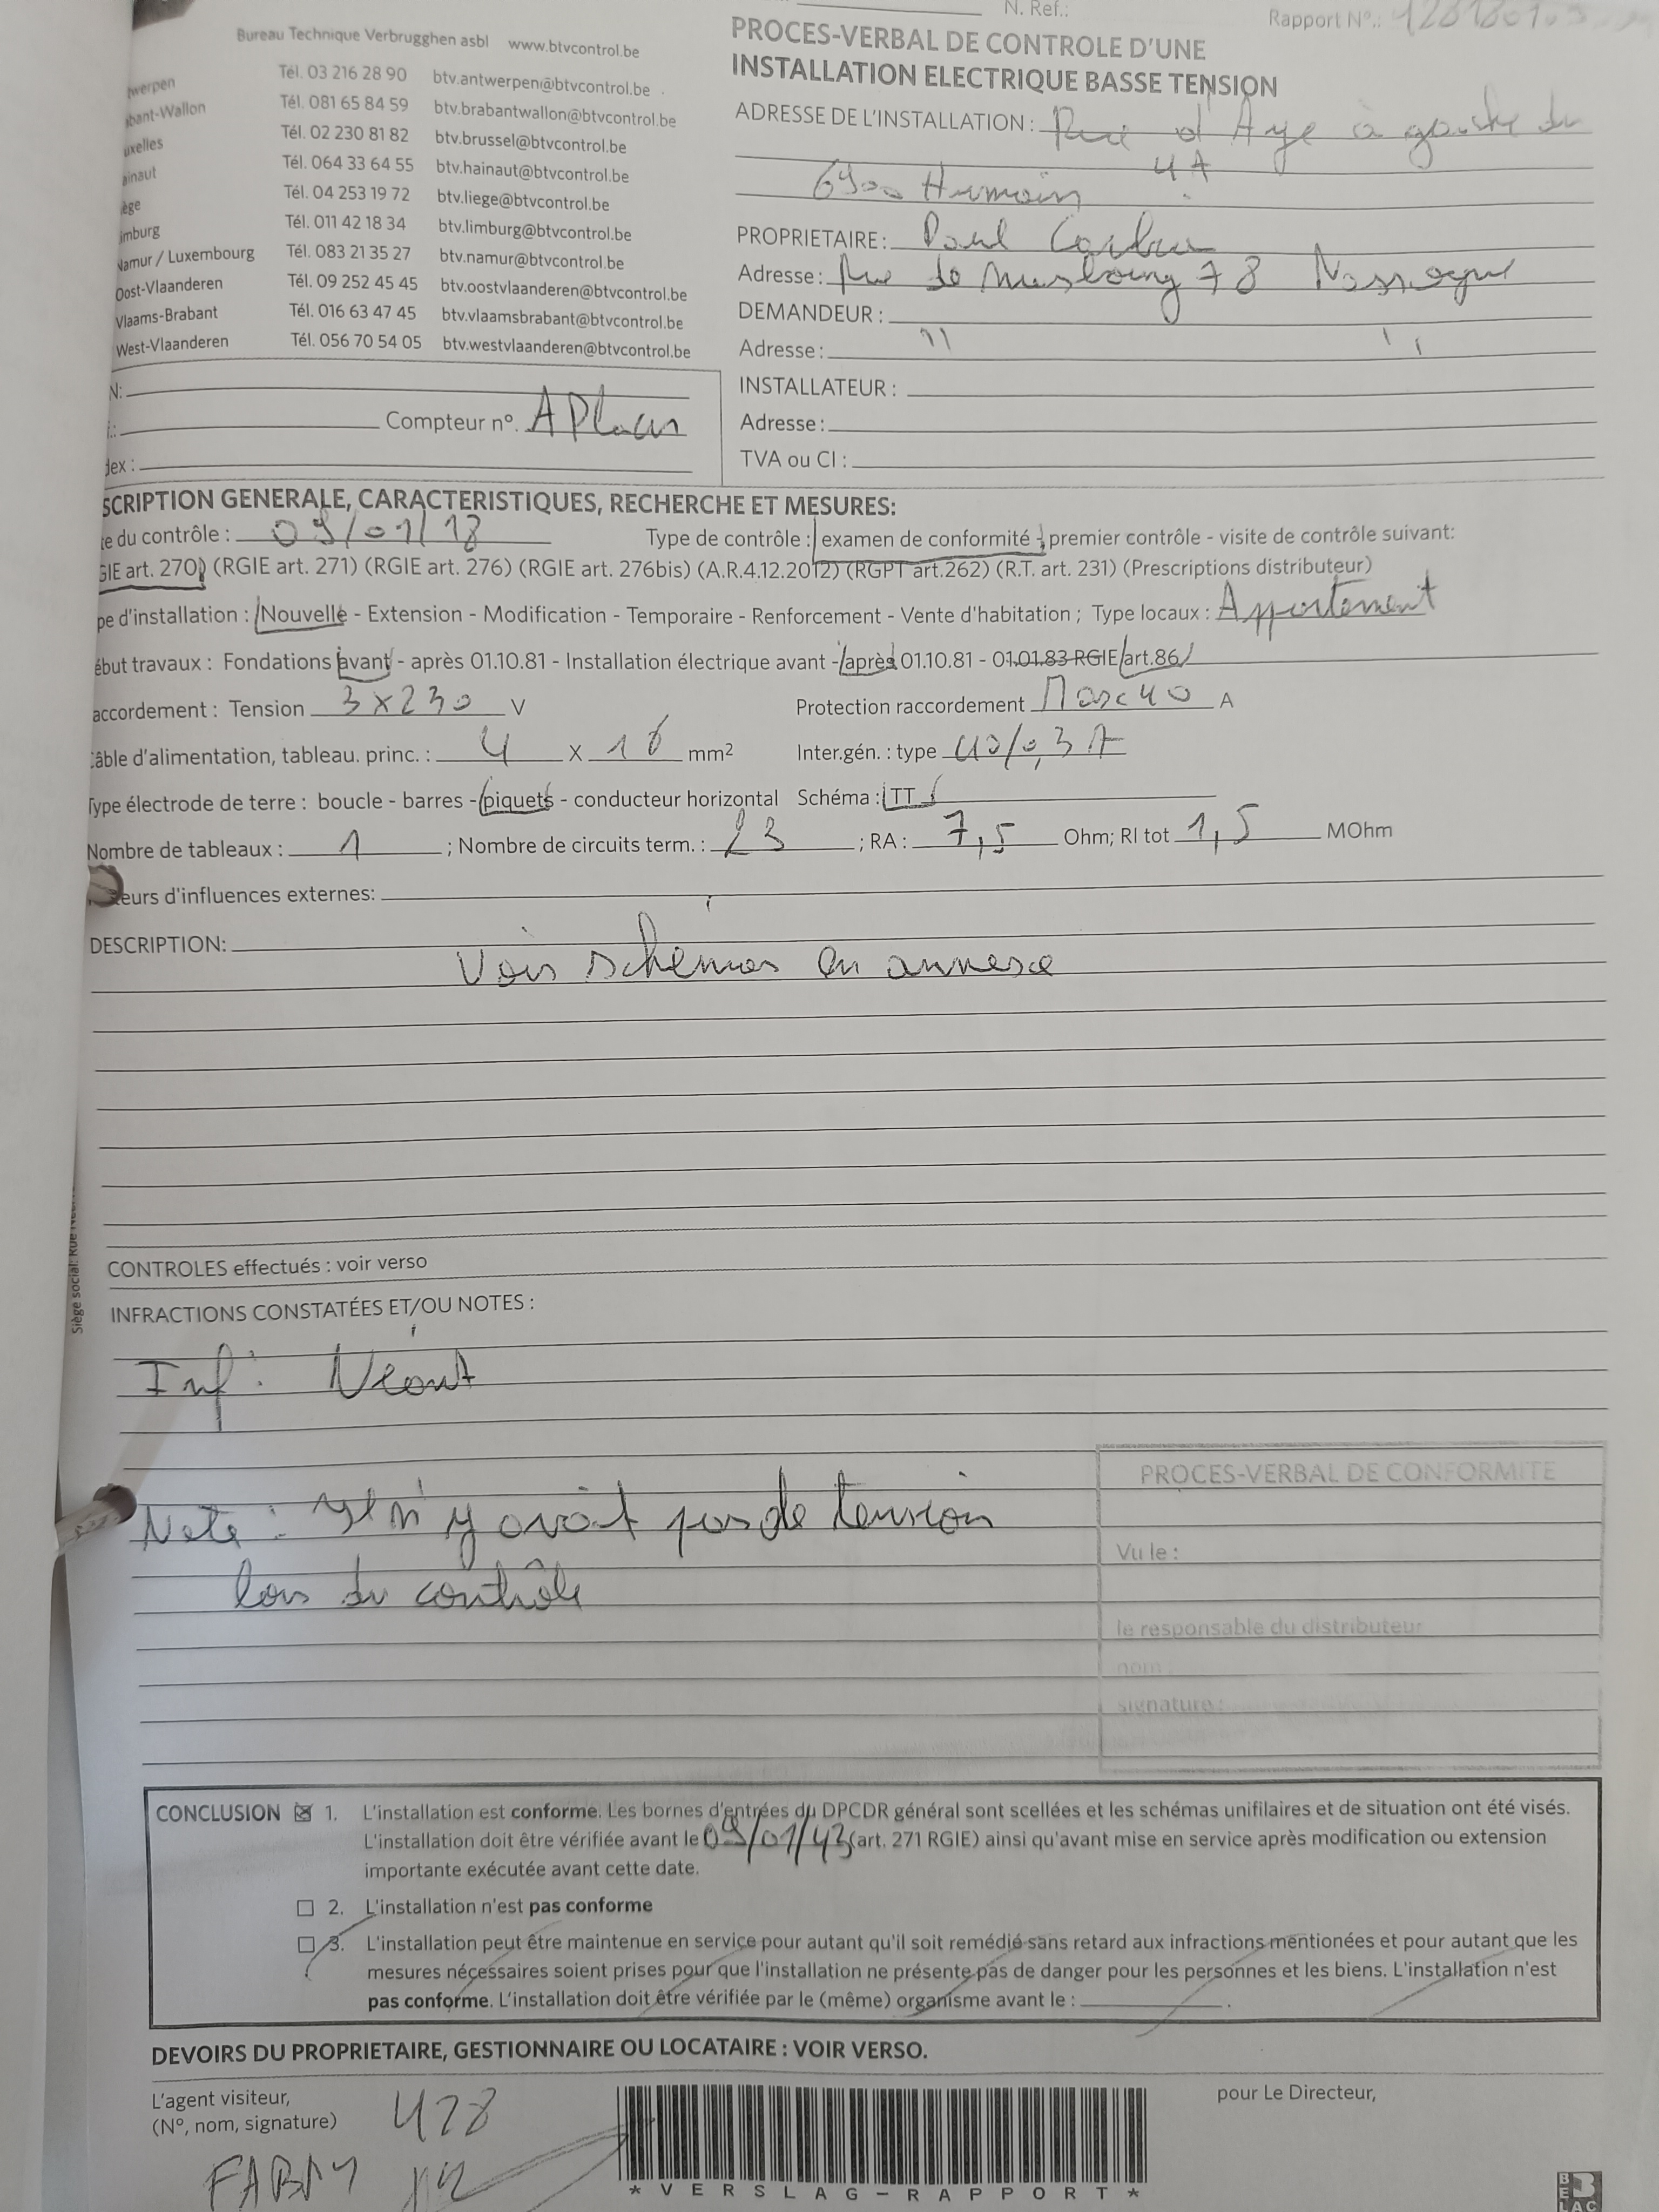 N. Ref.:
Rapport N°.:
Bureau Technique Verbrugghen asbl www.btvcontrol.be
werpen Tél. 03 216 28 90 btv.antwerpen@btvcontrol.be
bant-Wallon Tél. 081 65 84 59 btv.brabantwallon@btvcontrol.be
uxelles Tél. 02 230 81 82 btv.brussel@btvcontrol.be
ainaut Tél. 064 33 64 55 btv.hainaut@btvcontrol.be
ège Tél. 04 253 19 72 btv.liege@btvcontrol.be
imburg Tél. 011 42 18 34 btv.limburg@btvcontrol.be
Namur / Luxembourg Tél. 083 21 35 27 btv.namur@btvcontrol.be
Oost-Vlaanderen Tél. 09 252 45 45 btv.oostvlaanderen@btvcontrol.be
Vlaams-Brabant Tél. 016 63 47 45 btv.vlaamsbrabant@btvcontrol.be
West-Vlaanderen Tél. 056 70 54 05 btv.westvlaanderen@btvcontrol.be
N:
Compteur n°. A Placer
dex :
PROCES-VERBAL DE CONTROLE D'UNE
INSTALLATION ELECTRIQUE BASSE TENSION
ADRESSE DE L'INSTALLATION : Rue d'Aye à gauche du
4A
6900 Humain
PROPRIETAIRE : Paul
Adresse : Rue de 78 Nassogne
DEMANDEUR :
Adresse : " "
INSTALLATEUR :
Adresse :
TVA ou CI :
SCRIPTION GENERALE, CARACTERISTIQUES, RECHERCHE ET MESURES:
te du contrôle : 09/01/18 Type de contrôle : examen de conformité - premier contrôle - visite de contrôle suivant:
GIE art. 270) (RGIE art. 271) (RGIE art. 276) (RGIE art. 276bis) (A.R.4.12.2012) (RGPT art.262) (R.T. art. 231) (Prescriptions distributeur)
pe d'installation : Nouvelle - Extension - Modification - Temporaire - Renforcement - Vente d'habitation ; Type locaux : Appartement
ébut travaux : Fondations avant - après 01.10.81 - Installation électrique avant - après 01.10.81 - 01.01.83 RGIE art.86
accordement : Tension 3x230 V Protection raccordement Max 40 A
câble d'alimentation, tableau. princ. : 4 X 16 mm2 Inter.gén. : type 40/0,3 A
Type électrode de terre : boucle - barres - piquets - conducteur horizontal Schéma : TT
Nombre de tableaux : 1 ; Nombre de circuits term. : 23 ; RA : 7,5 Ohm; RI tot 1,5 MOhm
eurs d'influences externes:
DESCRIPTION:
Voir schémas en annexe
CONTROLES effectués : voir verso
INFRACTIONS CONSTATÉES ET/OU NOTES :
Inf : Néant
Note : Il n'y avait pas de tension
lors du contrôle
PROCES-VERBAL DE CONFORMITE
Vu le :
le responsable du distributeur
nom :
signature :
CONCLUSION ☒ 1. L'installation est conforme. Les bornes d'entrées du DPCDR général sont scellées et les schémas unifilaires et de situation ont été visés.
L'installation doit être vérifiée avant le 09/01/43 (art. 271 RGIE) ainsi qu'avant mise en service après modification ou extension
importante exécutée avant cette date.
☐ 2. L'installation n'est pas conforme
☐ 3. L'installation peut être maintenue en service pour autant qu'il soit remédié sans retard aux infractions mentionées et pour autant que les
mesures nécessaires soient prises pour que l'installation ne présente pas de danger pour les personnes et les biens. L'installation n'est
pas conforme. L'installation doit être vérifiée par le (même) organisme avant le :
DEVOIRS DU PROPRIETAIRE, GESTIONNAIRE OU LOCATAIRE : VOIR VERSO.
L'agent visiteur,
(N°, nom, signature) 428
pour Le Directeur,
* V E R S L A G - R A P P O R T *
BELAC